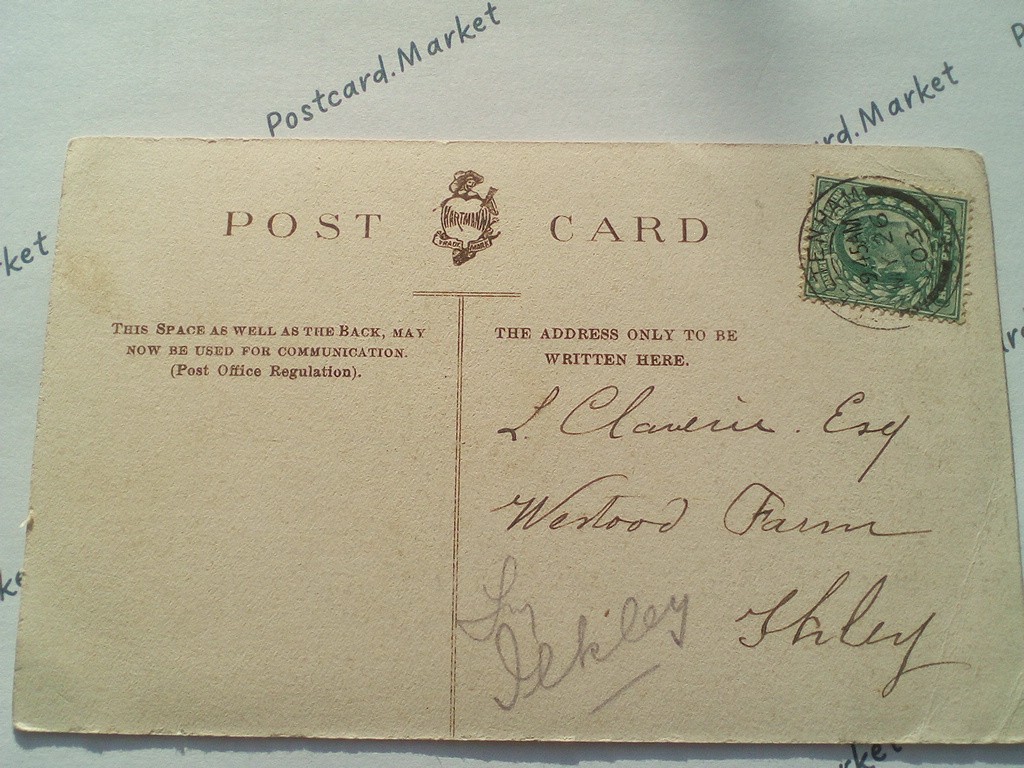 Postcard.Market
rd.Market
ket
POST CARD
HARTMANN
TRADE MARK
THIS SPACE AS WELL AS THE BACK, MAY
NOW BE USED FOR COMMUNICATION.
(Post Office Regulation).
THE ADDRESS ONLY TO BE
WRITTEN HERE.
TENHAM
9.45AM
26
04
L. Esq
Westood Farm
Ilkley
Ilkley
ket